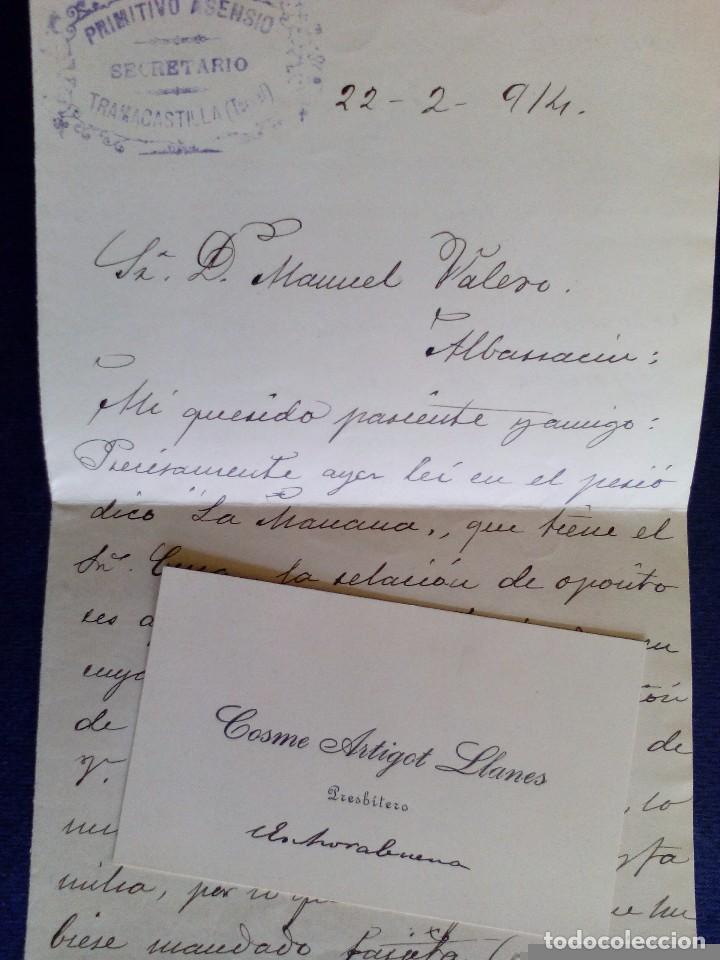 PRIMITIVO ASENSIO
SECRETARIO
TRAMACASTILLA (Teruel)
22-2-914.
Sr. D. Manuel Valero.
Albarracin:
Mi querido pariente y amigo:
Precisamente ayer leí en el perió
dico "La Mañana", que tiene el
Sr. Cura la relación de oposito
res
cuya
de de
V. lo
milia, por
biese mandado tarjeta
Cosme Artigot Llanes
Presbítero
Enhorabuena
todocoleccion
todocoleccion.net